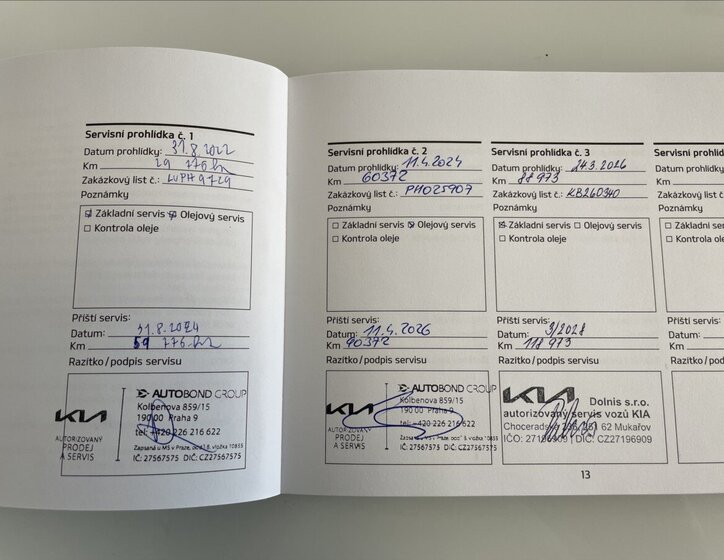 Servisní prohlídka č. 1
Datum prohlídky: 31.8.2022
Km 29 776 km
Zakázkový list č.: LVPH9729
Poznámky
Základní servis Olejový servis
Kontrola oleje
Příští servis:
Datum: 31.8.2024
Km 59 776 km
Razítko/podpis servisu
KIA
AUTORIZOVANÝ
PRODEJ
A SERVIS
AUTOBOND GROUP
Kolbenova 859/15
190 00 Praha 9
tel: +420 226 216 622
Zapsaná u MS v Praze, odd. B, vložka 10855
IČ: 27567575 DIČ: CZ27567575
Servisní prohlídka č. 2
Datum prohlídky: 11.4.2024
Km 60372
Zakázkový list č.: PH025907
Poznámky
Základní servis Olejový servis
Kontrola oleje
Příští servis:
Datum: 11.4.2026
Km 90372
Razítko/podpis servisu
KIA
AUTORIZOVANÝ
PRODEJ
A SERVIS
AUTOBOND GROUP
Kolbenova 859/15
190 00 Praha 9
tel: +420 226 216 622
IČ: 27567575 DIČ: CZ27567575
Servisní prohlídka č. 3
Datum prohlídky: 24.3.2026
Km 88973
Zakázkový list č.: KB260340
Poznámky
Základní servis Olejový servis
Kontrola oleje
Příští servis:
Datum: 3/2028
Km 118 973
Razítko/podpis servisu
KIA
Dolnis s.r.o.
autorizovaný servis vozů KIA
Choceradská 62 Mukařov
DIČ: CZ27196909
Servisní prohlíd
Datum prohlídky:
Km
Zakázkový list č.:
Poznámky
Základní ser
Kontrola ole
Příští servis:
Datum:
Km
Razítko/podpi
13